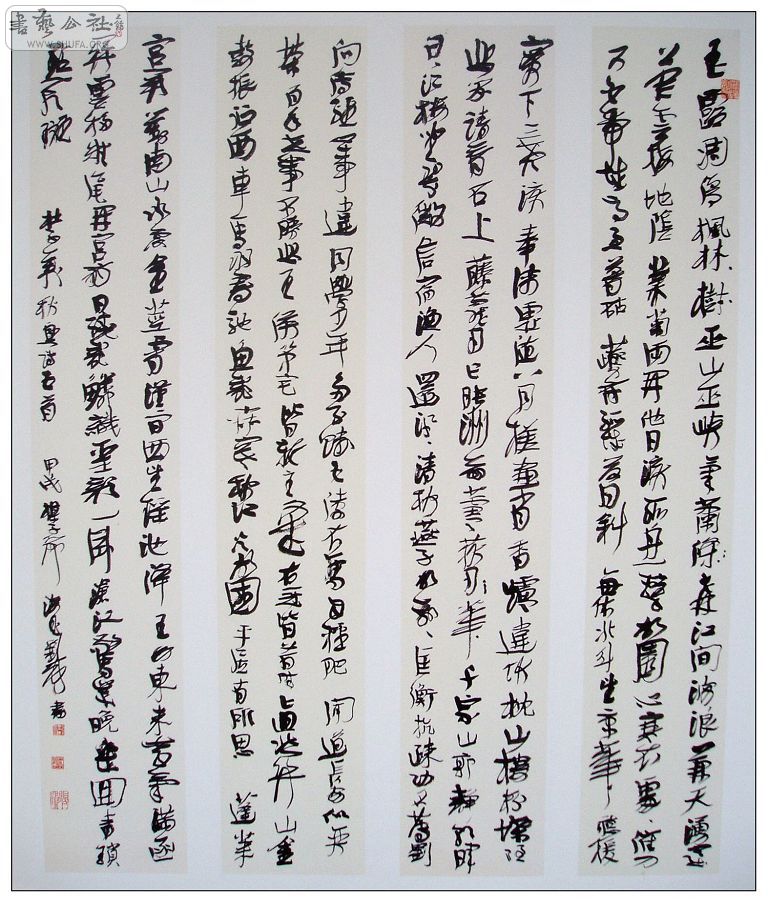 書藝公社
WWW.SHUFA.ORG
玉露凋傷楓林樹巫山巫峽氣蕭森江間波浪兼天湧塞
上風雲接地陰叢菊兩開他日淚孤舟一繫故園心寒衣處處催刀
尺白帝城高急暮砧夔府孤城落日斜每依北斗望京華聽猿
實下三聲淚奉使虛隨八月槎畫省香爐違伏枕山樓粉堞隱
悲笳請看石上藤蘿月已映洲前蘆荻花千家山郭靜朝暉
日日江樓坐翠微信宿漁人還泛泛清秋燕子故飛飛匡衡抗疏功名薄劉
向傳經心事違同學少年多不賤五陵衣馬自輕肥聞道長安似弈
棋百年世事不勝悲王侯第宅皆新主文武衣冠異昔時直北關山金
鼓振征西車馬羽書馳魚龍寂寞秋江冷故國平居有所思蓬萊
宮闕對南山承露金莖霄漢間西望瑤池降王母東來紫氣滿函
關雲移雉尾開宮扇日繞龍鱗識聖顏一臥滄江驚歲晚幾回青瑣
點朝班 杜甫秋興詩五首 甲戌